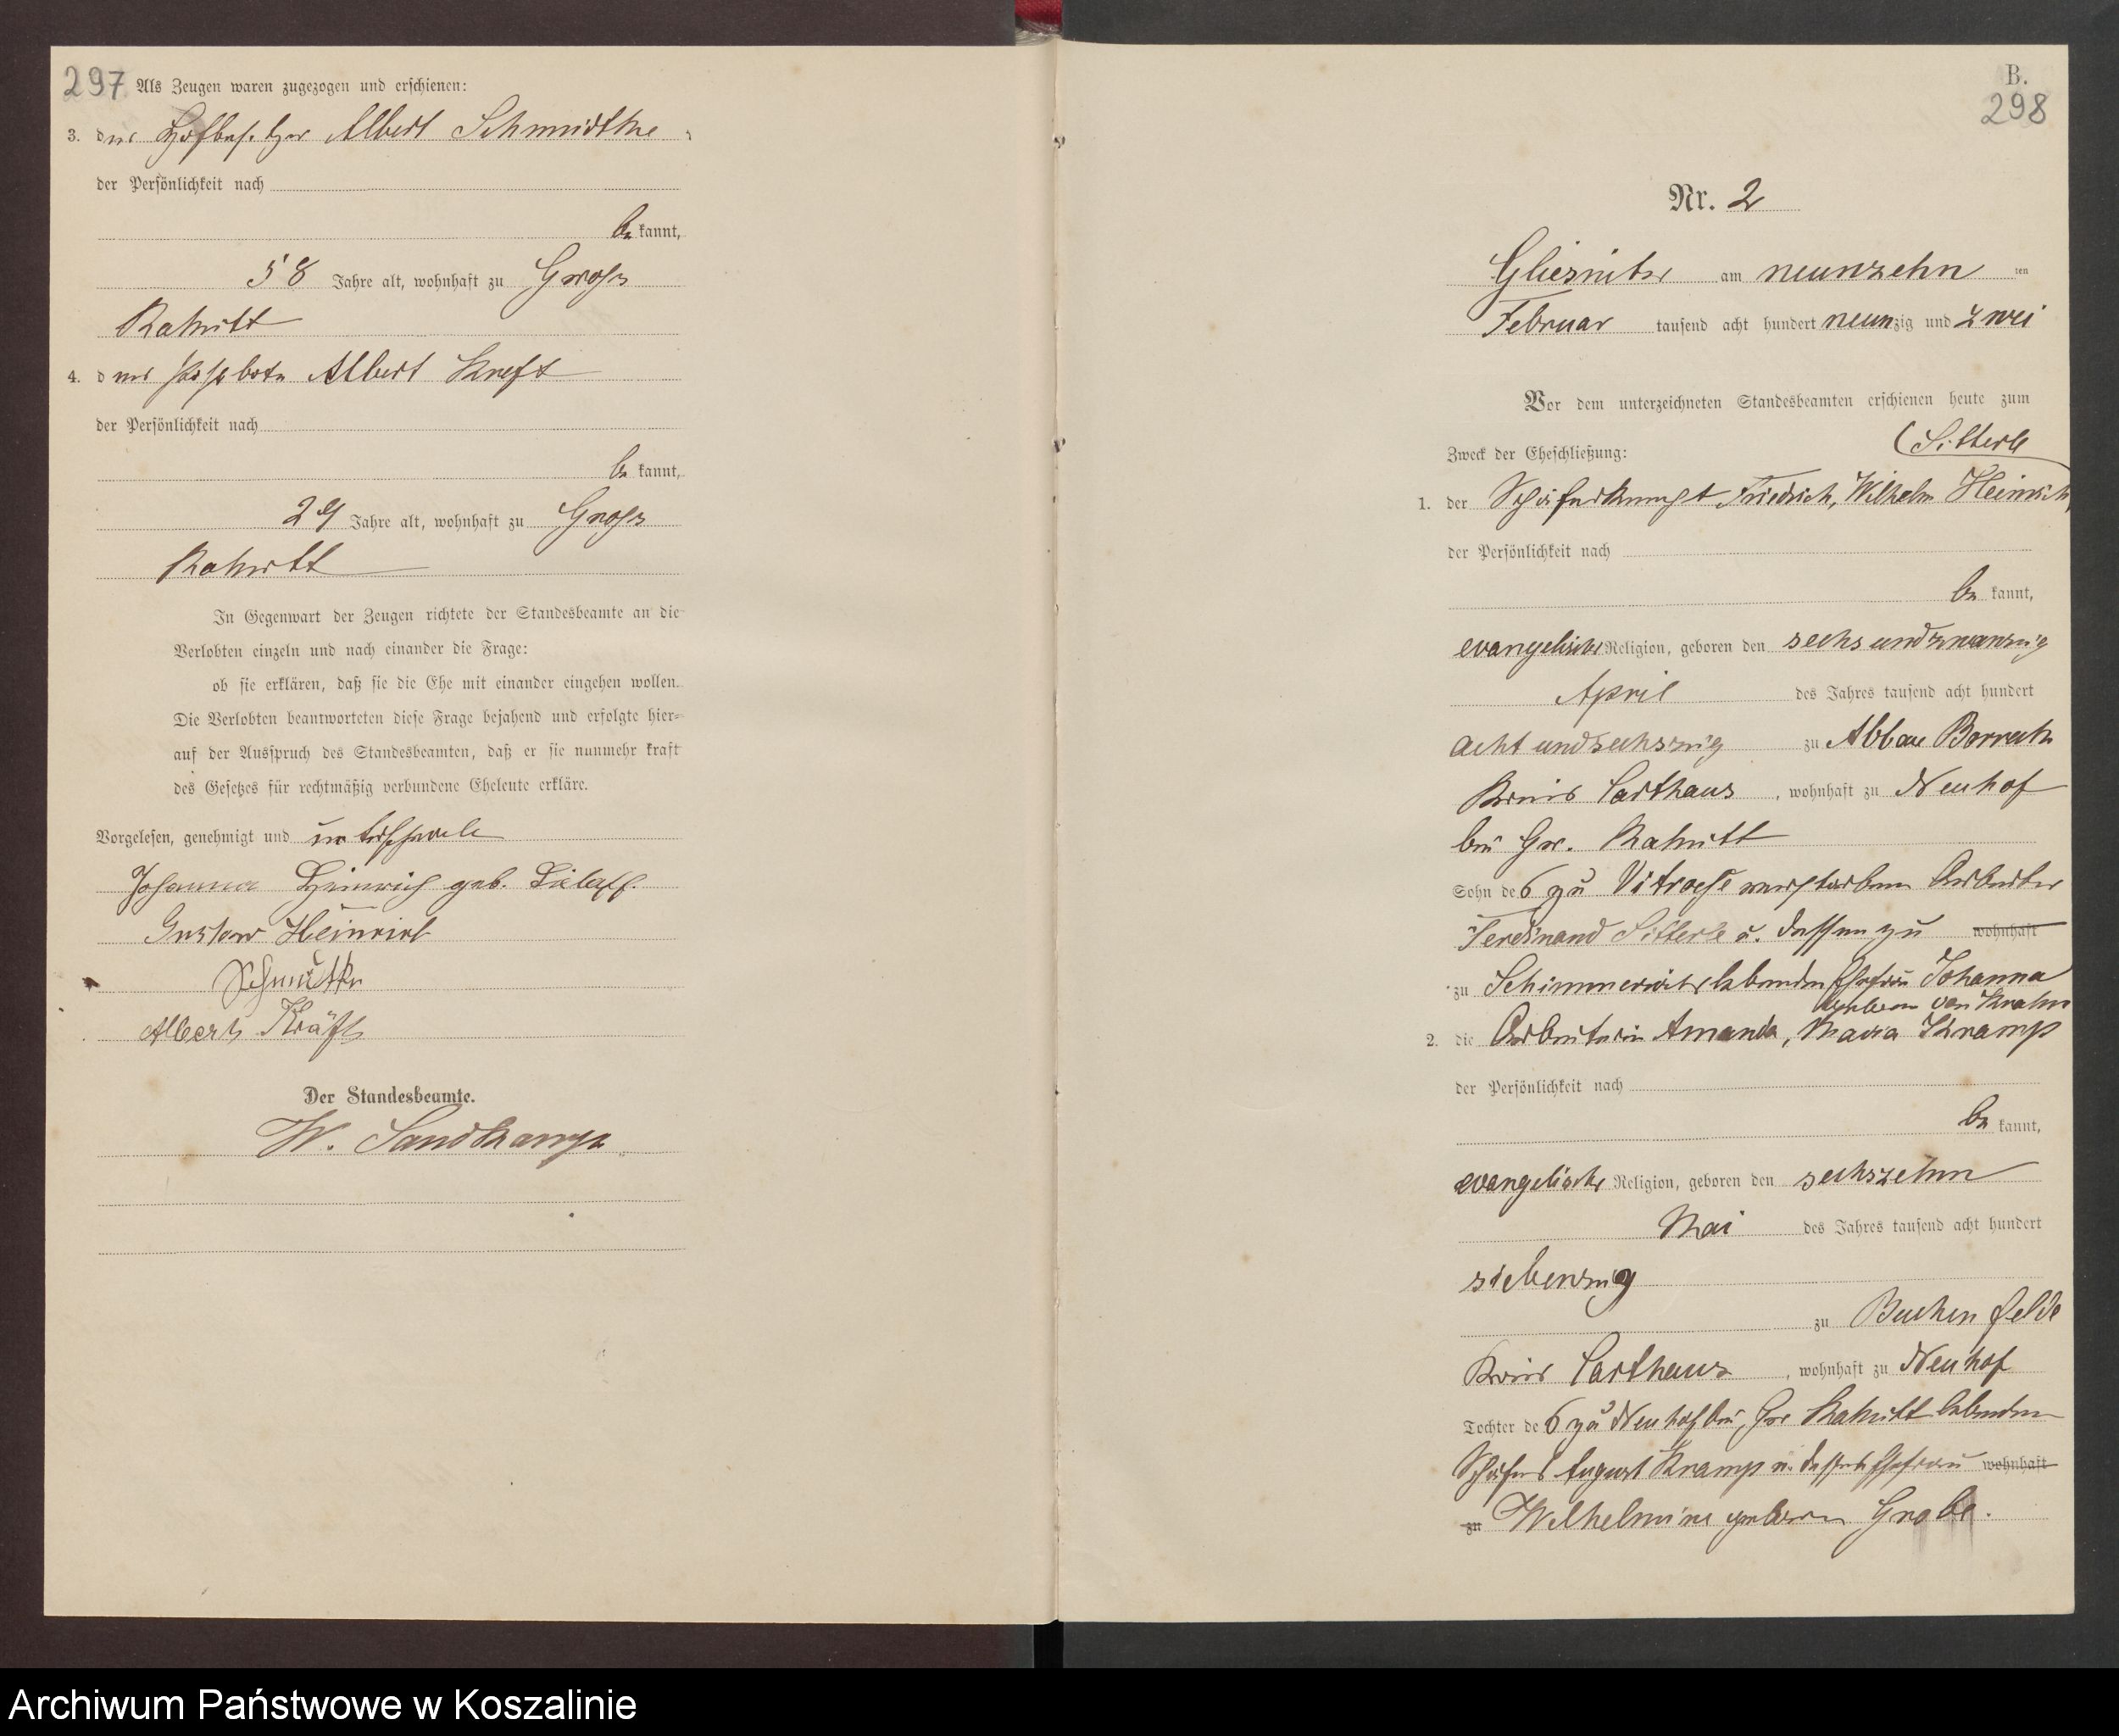 297 Als Zeugen waren zugezogen und erschienen:
3. der Hofbesitzer Albert Schmidtke
der Persönlichkeit nach
be kannt,
58 Jahre alt, wohnhaft zu Gross
Rakitt
4. der Albert Kreft
der Persönlichkeit nach
be kannt,
29 Jahre alt, wohnhaft zu Gross
Rakitt
In Gegenwart der Zeugen richtete der Standesbeamte an die
Verlobten einzeln und nach einander die Frage:
ob sie erklären, daß sie die Ehe mit einander eingehen wollen.
Die Verlobten beantworteten diese Frage bejahend und erfolgte hier=
auf der Ausspruch des Standesbeamten, daß er sie nunmehr kraft
des Gesetzes für rechtmäßig verbundene Eheleute erkläre.
Vorgelesen, genehmigt und
Johanna Heinrich geb.
Gustav Heinrich
Albert Kräft
Der Standesbeamte.
W. Sandkamp
B.
298
Nr. 2
Gliesnitz am neunzehn ten
Februar tausend acht hundert neunzig und zwei
Vor dem unterzeichneten Standesbeamten erschienen heute zum
Zweck der Eheschließung:
(Sitterle
1. der Schäferknecht Friedrich, Wilhelm Heinrich
der Persönlichkeit nach
be kannt,
evangelischer Religion, geboren den sechsundzwanzig
April des Jahres tausend acht hundert
achtundsechszig zu Abbau
Kreis Carthaus, wohnhaft zu Neuhof
bei Gr. Rakitt
Sohn des zu verstorbenen Arbeiter
Ferdinand Sitterle u. dessen zu wohnhaft
zu Schimmerwitz lebenden Ehefrau Johanna
geboren
2. die Arbeiterin Amanda, Maria Kramp
der Persönlichkeit nach
be kannt,
evangelischer Religion, geboren den sechszehn
Mai des Jahres tausend acht hundert
siebenzig
zu Buchenfelde
Kreis Carthaus, wohnhaft zu Neuhof
Tochter des zu Neuhof bei Gr Rakitt lebenden
Schäfers August Kramp u. dessen Ehefrau wohnhaft
zu Wilhelmine geboren Grabe.
Archiwum Państwowe w Koszalinie